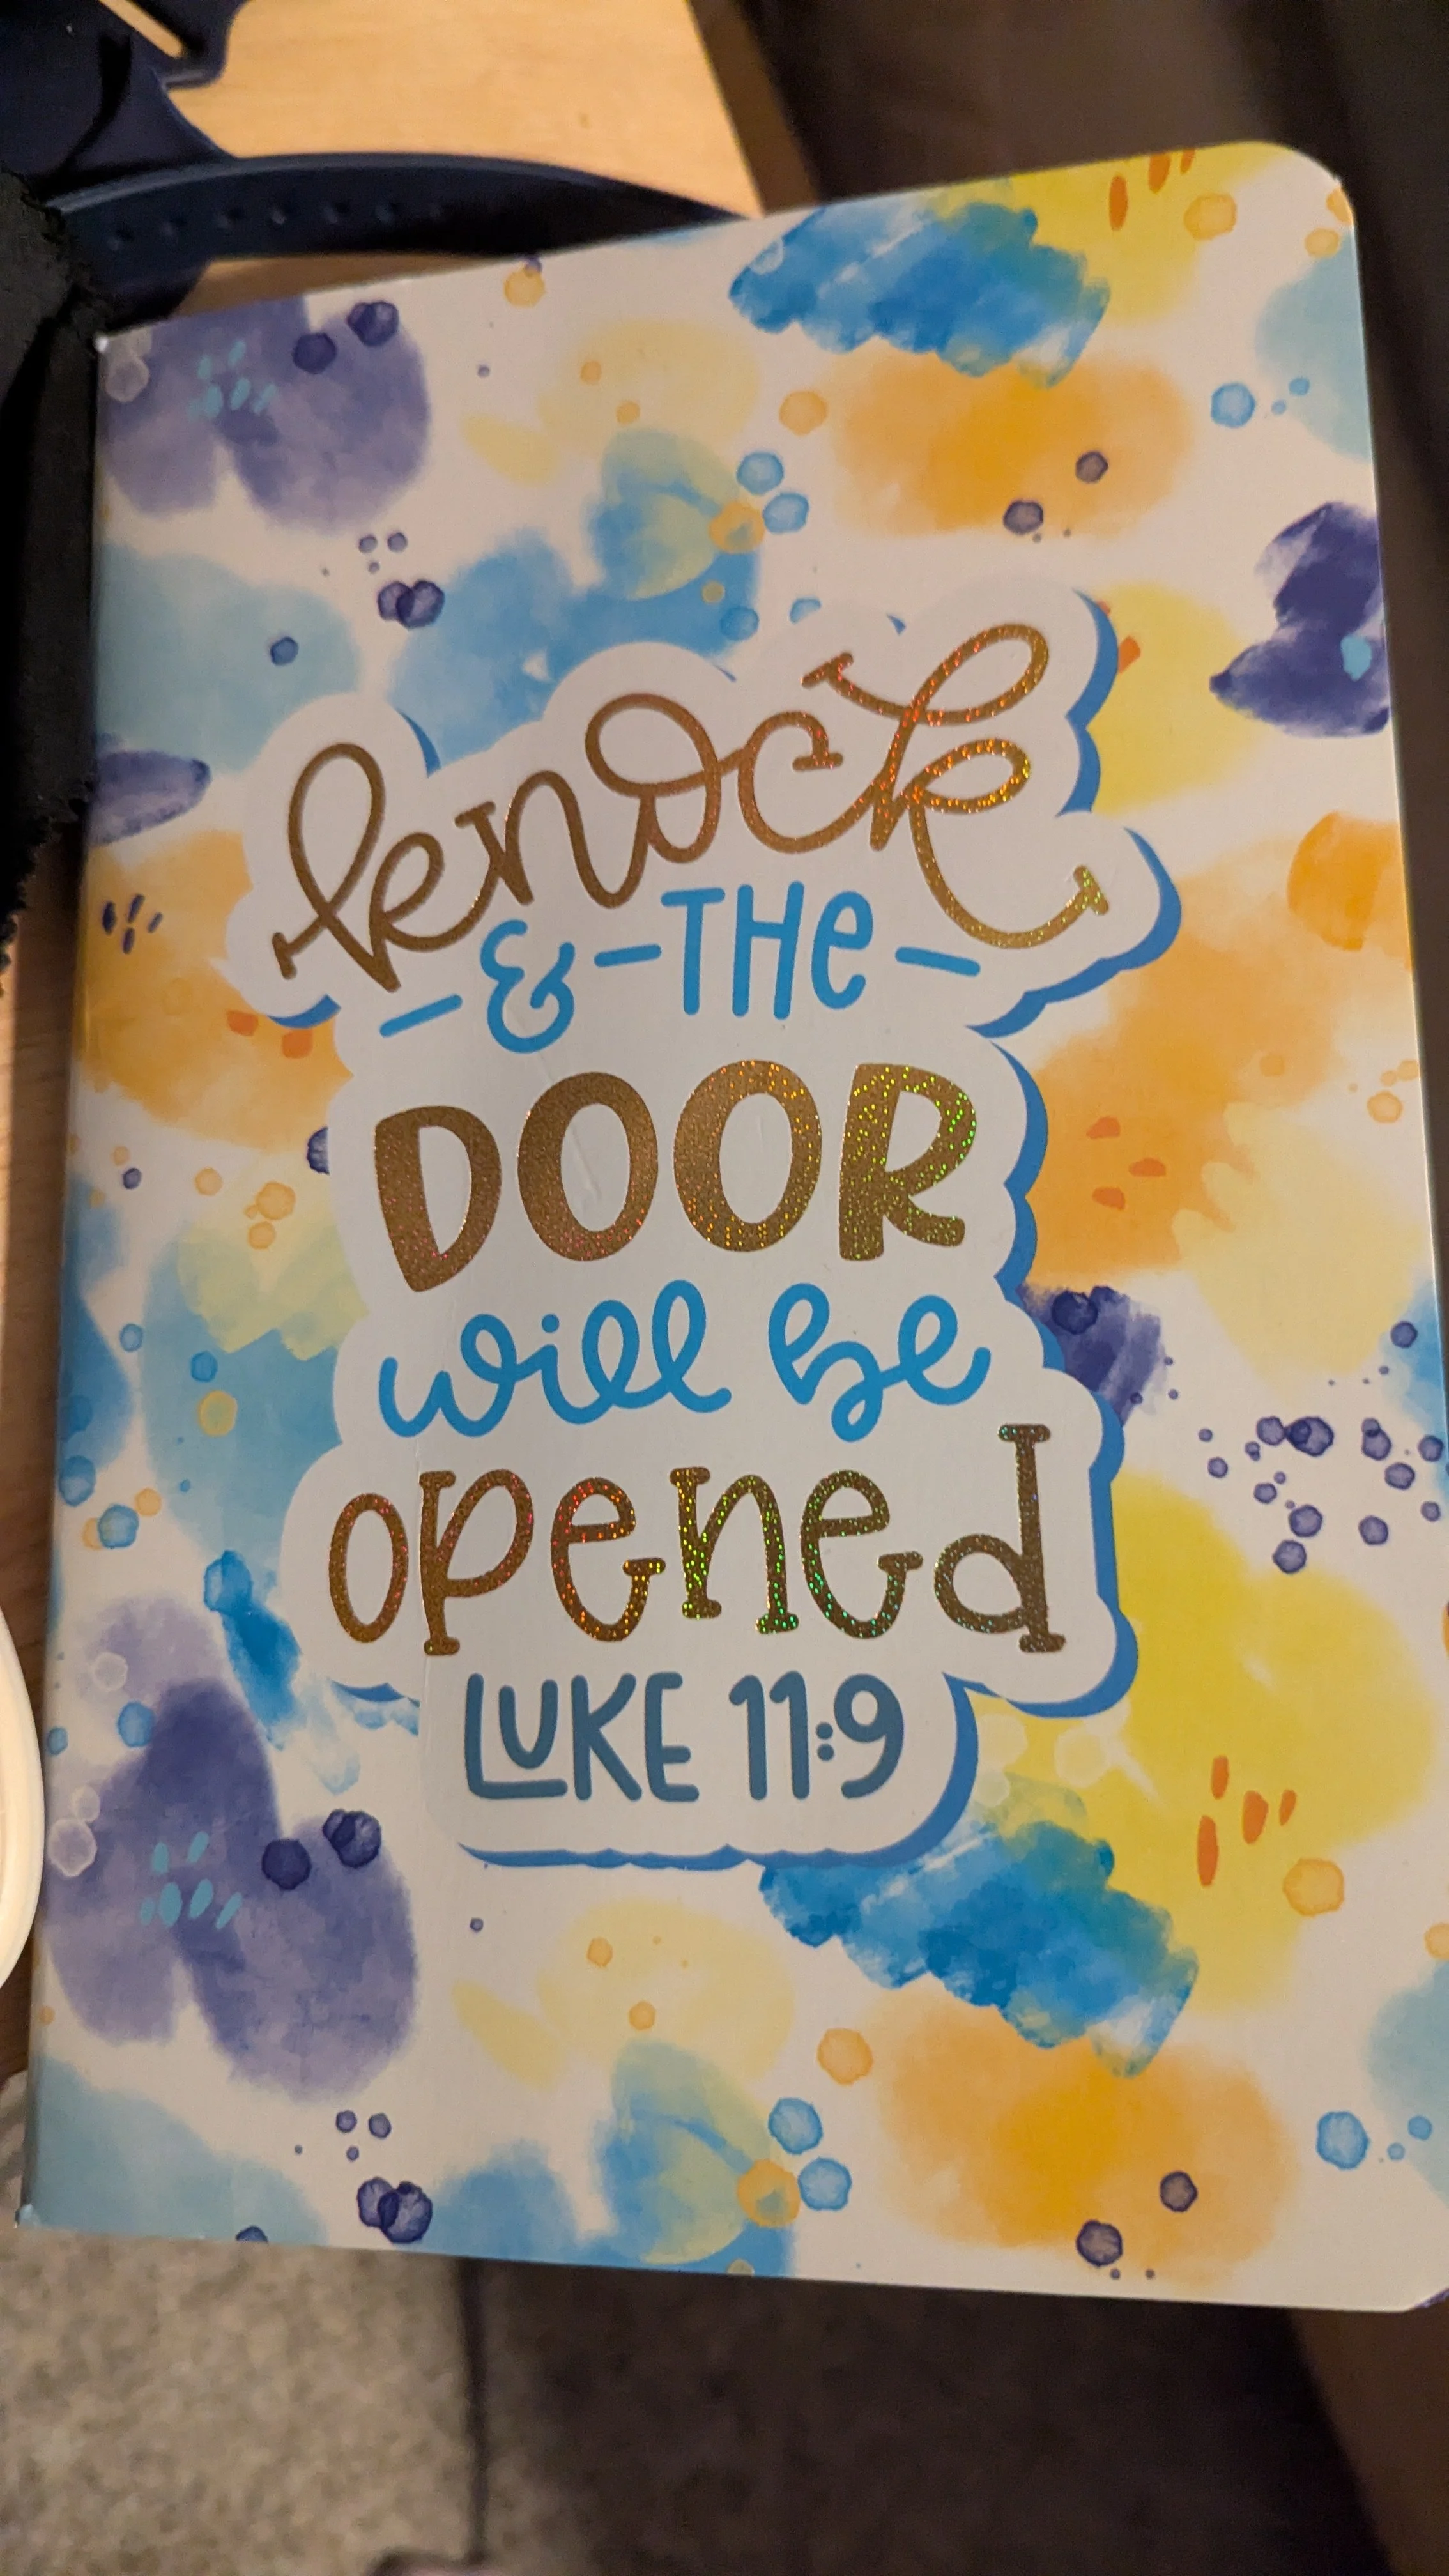 knock
& THe
DOOR
will be
opened
LUKE 11:9